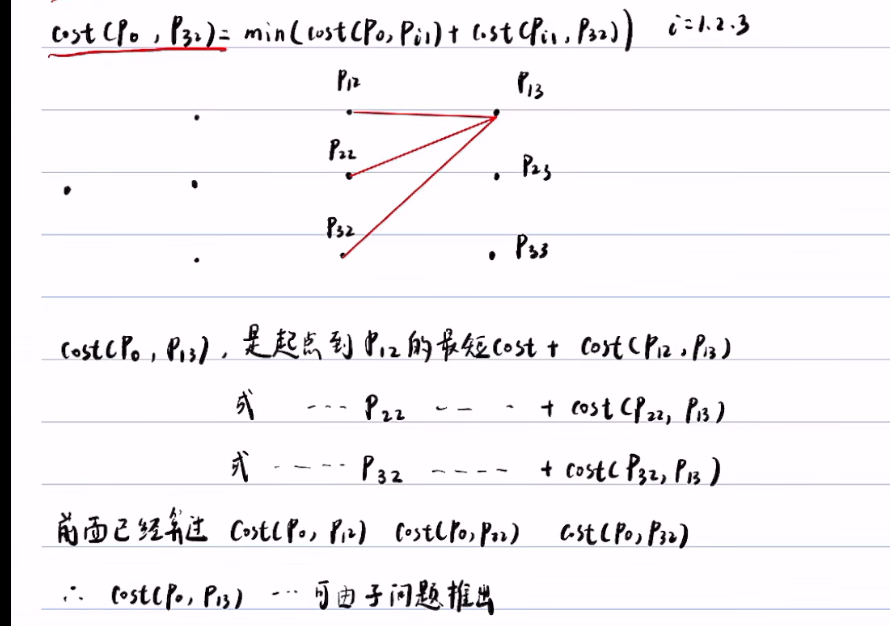 cost(P0, P32) = min(cost(P0, Pi1) + cost(Pi1, P32)) i=1.2.3
P12 P13
P22 P23
P32 P33
cost(P0, P13), 是起点到P12的最短cost + cost(P12, P13)
或 ---- P22 -- - · + cost(P22, P13)
或 ----- P32 ---- + cost(P32, P13)
前面已经算过 cost(P0, P12) cost(P0, P22) cost(P0, P32)
∴ cost(P0, P13) --- 可由子问题推出